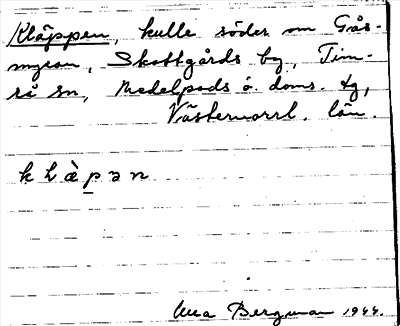 Kläppen, kulle söder om Gås-
myran, Skottgårds by, Tim-
rå sn, Medelpads ö. doms. tg,
Västernorrl. län.
k l ä̀ p ə n
Bergman 1944.